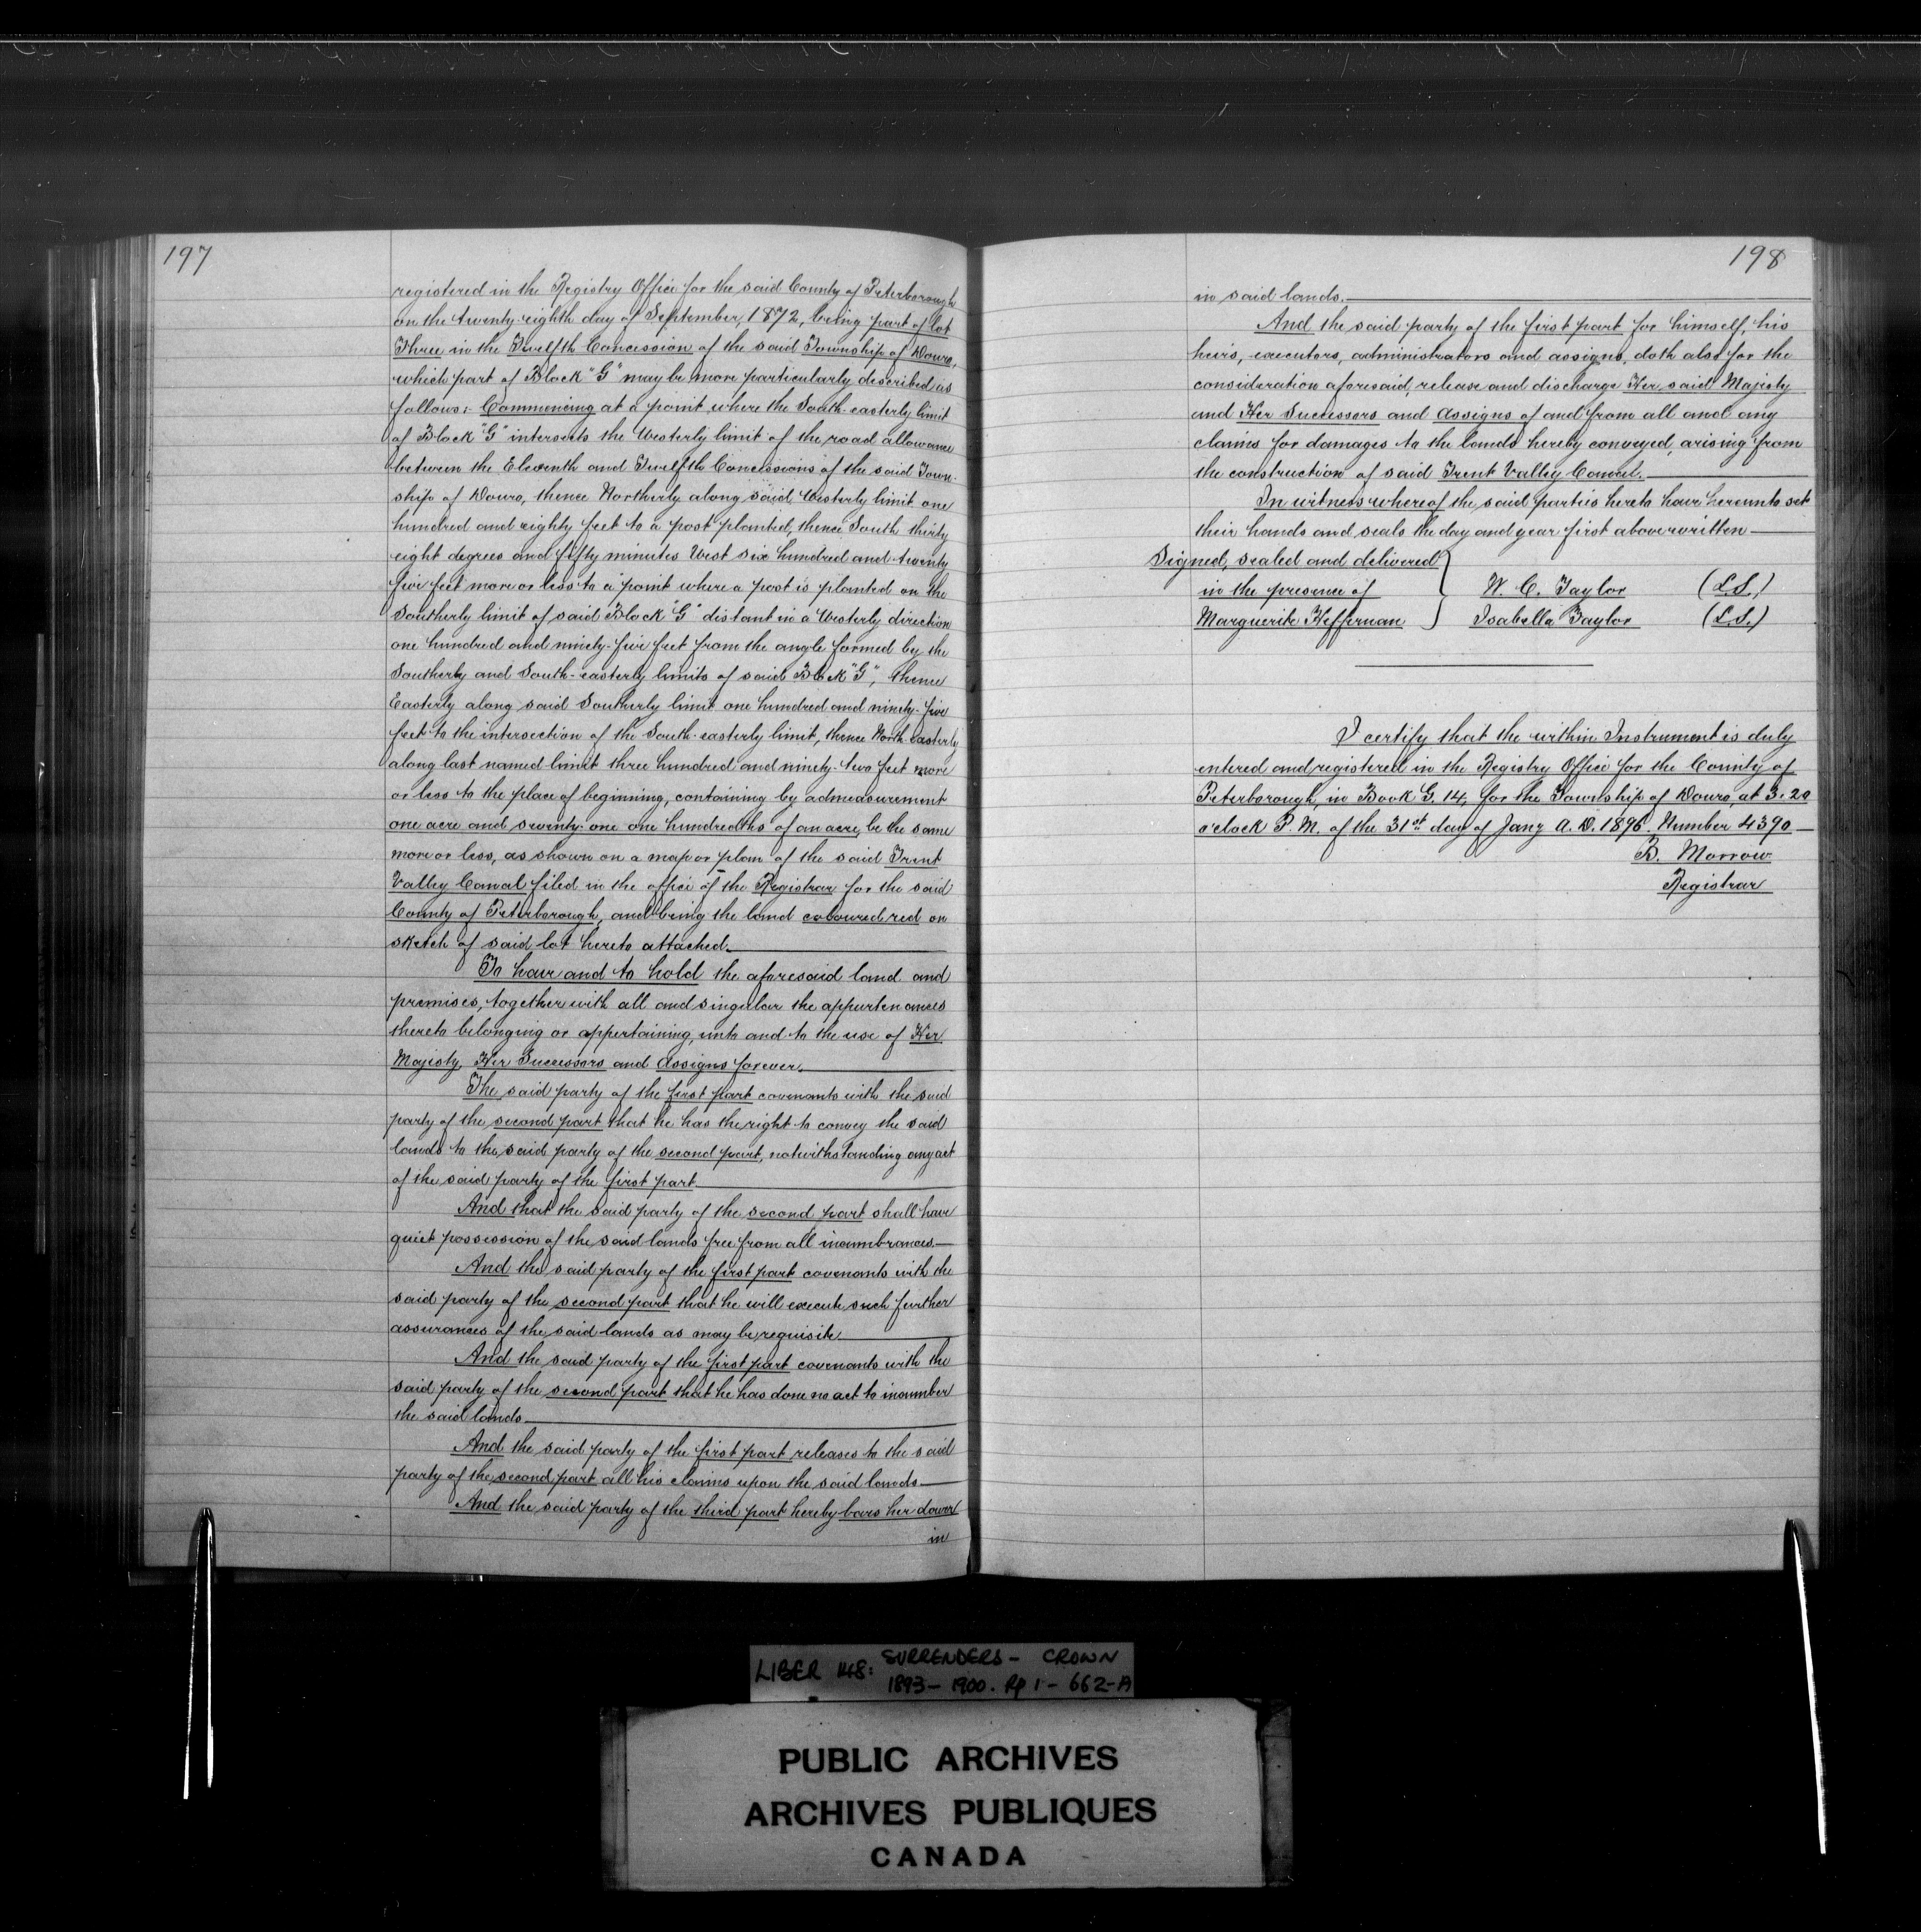 197
registered in the Registry Office for the said County of Peterborough
on the twenty-eighth day of September, 1872, being part of lot
Three in the Twelfth Concession of the said Township of Douro,
which part of Block "G" may be more particularly described as
follows:- Commencing at a point where the South-easterly limit
of Block "G" intersects the Westerly limit of the road allowance
between the Eleventh and Twelfth Concessions of the said Town-
ship of Douro, thence Northerly along said Westerly limit one
hundred and eighty feet to a post planted, thence South thirty
eight degrees and fifty minutes West six hundred and twenty
five feet more or less to a point where a post is planted on the
Southerly limit of said Block "G" distant in a Westerly direction
one hundred and ninety-five feet from the angle formed by the
Southerly and South-easterly limits of said Block "G", thence
Easterly along said Southerly limit one hundred and ninety-five
feet to the intersection of the South-easterly limit, thence North-easterly
along last named limit three hundred and ninety-two feet more
or less to the place of beginning, containing by admeasurement
one acre and seventy-one one hundredths of an acre, be the same
more or less, as shown on a map or plan of the said Trent
Valley Canal filed in the office of the Registrar for the said
County of Peterborough, and being the land coloured red on
sketch of said lot hereto attached.
To have and to hold the aforesaid land and
premises, together with all and singular the appurtenances
thereto belonging or appertaining, unto and to the use of Her
Majesty, Her Successors and Assigns forever.
The said party of the first part covenants with the said
party of the second part that he has the right to convey the said
lands to the said party of the second part, notwithstanding any act
of the said party of the first part.
And that the said party of the second part shall have
quiet possession of the said lands free from all incumbrances.
And the said party of the first part covenants with the
said party of the second part that he will execute such further
assurances of the said lands as may be requisite
And the said party of the first part covenants with the
said party of the second part that he has done no act to incumber
the said lands
And the said party of the first part releases to the said
party of the second part all his claims upon the said lands
And the said party of the third part hereby bars her dower
in
198
in said lands.
And the said party of the first part for himself, his
heirs, executors, administrators and assigns, doth also for the
consideration aforesaid, release and discharge Her said Majesty
and Her Successors and Assigns of and from all and any
claims for damages to the lands hereby conveyed, arising from
the construction of said Trent Valley Canal.
In witness whereof the said parties hereto have hereunto set
their hands and seals the day and year first above written
Signed, sealed and delivered
in the presence of W. C. Taylor (L.S.)
Marguerite Heffernan Isabella Taylor (L.S.)
I certify that the within Instrument is duly
entered and registered in the Registry Office for the County of
Peterborough, in Book G. 14, for the Township of Douro, at 3.20
o'clock P.M. of the 31st day of Jany A.D. 1896. Number 4390
B. Morrow
Registrar
LIBER 148: SURRENDERS - CROWN
1893 - 1900. Pp 1 - 662-A
PUBLIC ARCHIVES
ARCHIVES PUBLIQUES
CANADA